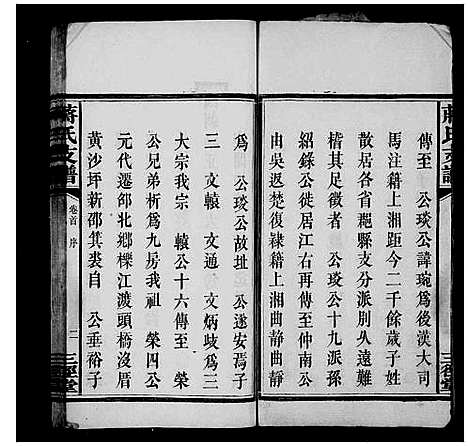 傳至 公琰公諱琬爲後漢大司
馬注籍上湘距今二千餘歲子姓
散居各省䎱縣支分派別久遠難
稽其足徵者 公琰公十九派孫
紹錄公徙居江右再傳至仲南公
由吳返楚復隸籍上湘曲靜曲靜
爲 公琰公故址 公遂安焉子
三 文轅 文通 文炳歧爲三
大宗我宗 轅公十六傳至 榮
公兄弟析爲九房我祖 榮四公
元代遷邵北鄉櫟江渡頭橋沒厝
黄沙坪新邵箕裘自 公垂裕子
蔣氏支譜
卷首 序
二
三徑堂